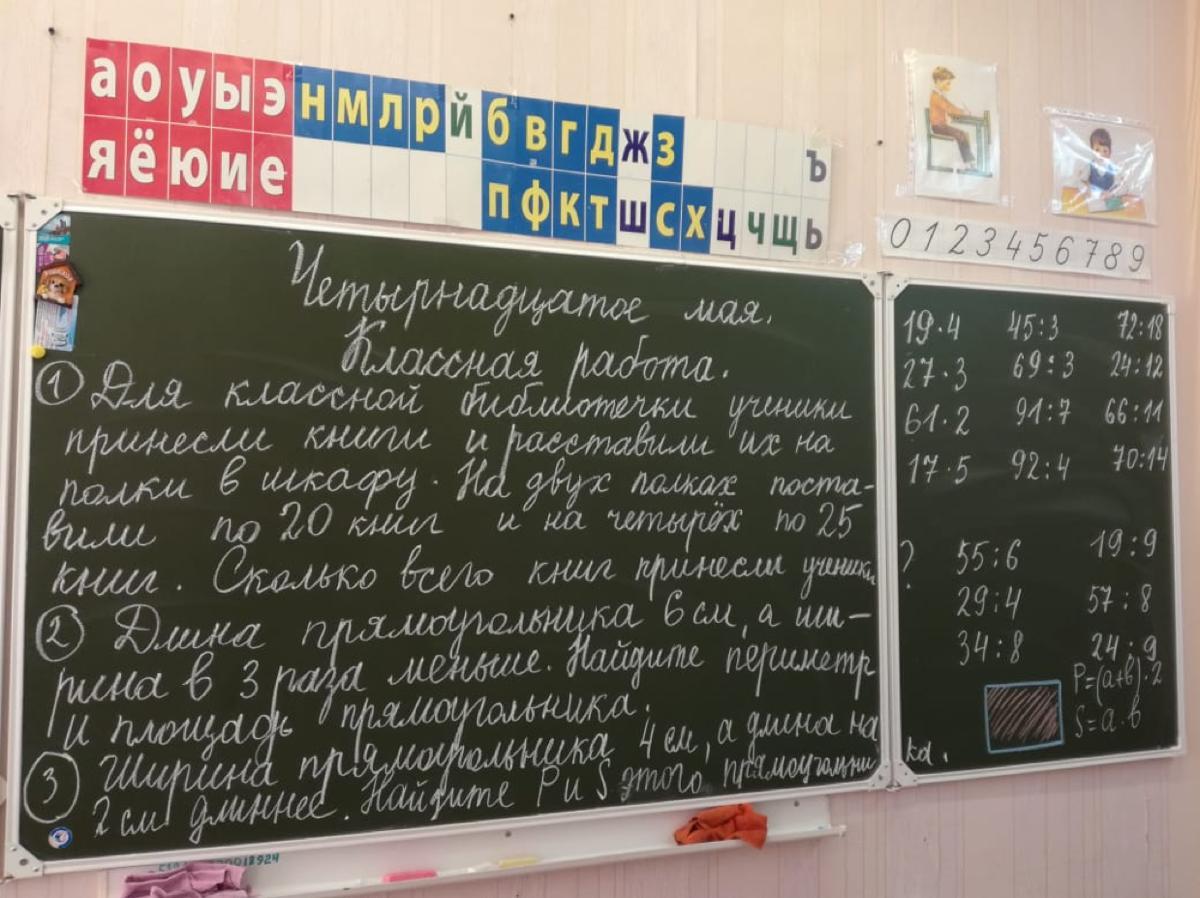 а о у ы э н м л р й б в г д ж з ъ
я ё ю и е п ф к т ш с х ц ч щ ь
0 1 2 3 4 5 6 7 8 9
Четырнадцатое мая.
Классная работа.
① Для классной библиотечки ученики
принесли книги и расставили их на
полки в шкафу. На двух полках поста-
вили по 20 книг и на четырёх по 25
книг. Сколько всего книг принесли ученики ?
② Длина прямоугольника 6 см, а ши-
рина в 3 раза меньше. Найдите периметр
и площадь прямоугольника.
③ Ширина прямоугольника 4 см, а длина на
2 см длиннее. Найдите P и S этого прямоугольни
ка.
19·4 45:3 72:18
27·3 69:3 24:12
61·2 91:7 66:11
17·5 92:4 70:14
55:6 19:9
29:4 57:8
34:8 24:9
P=(a+b)·2
S=a·b